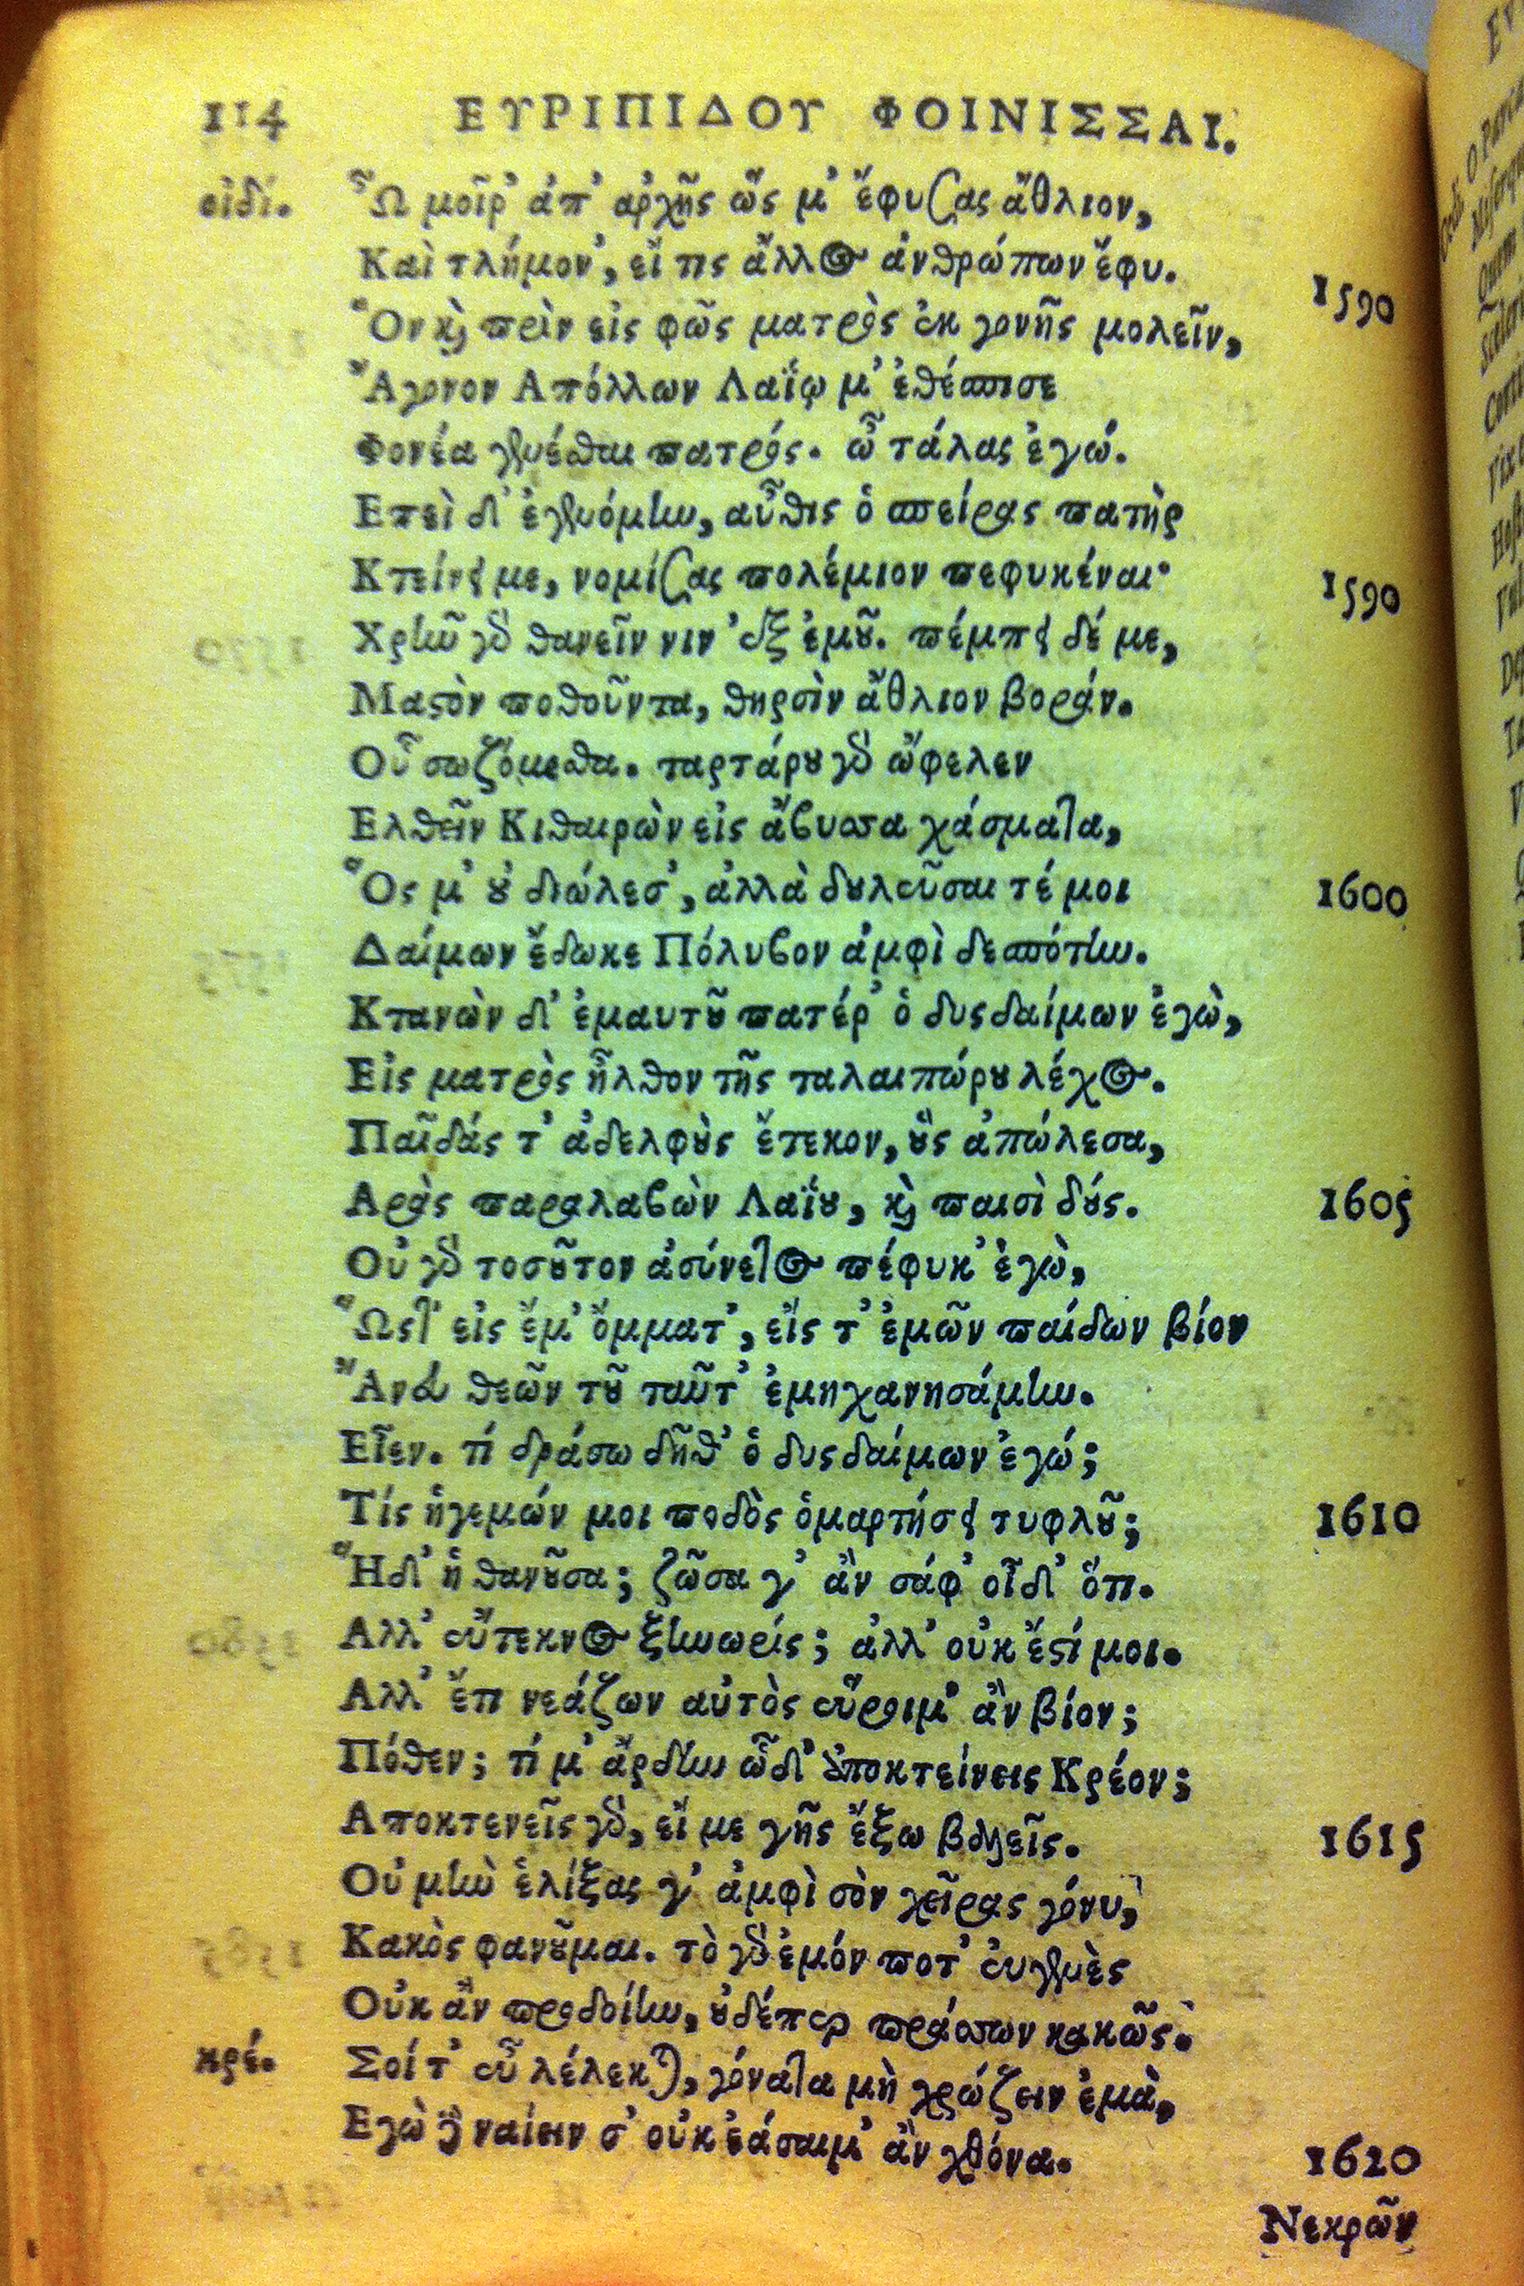 114 ΕΥΡΙΠΙΔΟΥ ΦΟΙΝΙΣΣΑΙ.
οἰδί. Ὦ μοῖρ' ἀπ' ἀρχῆς ὥς μ' ἔφυσας ἄθλιον,
Καὶ τλήμον', εἴ τις ἄλλος ἀνθρώπων ἔφυ.
Ὃν καὶ πρὶν εἰς φῶς ματρὸς ἐκ γονῆς μολεῖν, 1590
Ἄγονον Απόλλων Λαΐῳ μ' ἐθέσπισε
Φονέα γενέσθαι πατρός. ὦ τάλας ἐγώ.
Επεὶ δ' ἐγενόμην, αὖθις ὁ σπείρας πατὴρ
Κτείνει με, νομίσας πολέμιον πεφυκέναι· 1590
Χρῆν γὰρ θανεῖν νιν 'ξ ἐμοῦ. πέμπει δέ με,
Μαστὸν ποθοῦντα, θηρσὶν ἄθλιον βοράν.
Οὗ σωζόμεσθα. ταρτάρου γὰρ ὤφελεν
Ελθεῖν Κιθαιρὼν εἰς ἄβυσσα χάσματα,
Ὅς μ' οὐ διώλεσ', ἀλλὰ δουλεῦσαι τέ μοι 1600
Δαίμων ἔδωκε Πόλυβον ἀμφὶ δεσπότην.
Κτανὼν δ' ἐμαυτοῦ πατέρ' ὁ δυςδαίμων ἐγὼ,
Εἰς ματρὸς ἦλθον τῆς ταλαιπώρου λέχος.
Παῖδάς τ' ἀδελφοὺς ἔτεκον, οὓς ἀπώλεσα,
Αρὰς παραλαβὼν Λαΐου, καὶ παισὶ δούς. 1605
Οὐ γὰρ τοσοῦτον ἀσύνετος πέφυκ' ἐγὼ,
Ὥστ' εἰς ἔμ' ὄμματ', εἴς τ' ἐμῶν παίδων βίον
Ἄνευ θεῶν του ταῦτ' ἐμηχανησάμην.
Εἶεν. τί δράσω δῆθ' ὁ δυςδαίμων ἐγώ;
Τίς ἡγεμών μοι ποδὸς ὁμαρτήσει τυφλοῦ; 1610
Ἥδ' ἡ θανοῦσα; ζῶσα γ' ἂν σάφ' οἶδ' ὅτι.
Αλλ' εὔτεκνος ξυνωρίς; ἀλλ' οὐκ ἔστί μοι.
Αλλ' ἔτι νεάζων αὐτὸς εὕροιμ' ἂν βίον;
Πόθεν; τί μ' ἄρδην ὧδ' ἀποκτείνεις Κρέον;
Αποκτενεῖς γὰρ, εἴ με γῆς ἔξω βαλεῖς. 1615
Οὐ μὴν ἑλίξας γ' ἀμφὶ σὸν χεῖρας γόνυ,
Κακὸς φανοῦμαι. τὸ γὰρ ἐμόν ποτ' εὐγενὲς
Οὐκ ἂν προδοίην, οὐδέπερ πράσσων κακῶς.
κρέ. Σοί τ' εὖ λέλεκται, γόνατα μὴ χρώζειν ἐμὰ,
Εγὼ δὲ ναίειν σ' οὐκ ἐάσαιμ' ἂν χθόνα. 1620
Νεκρῶν